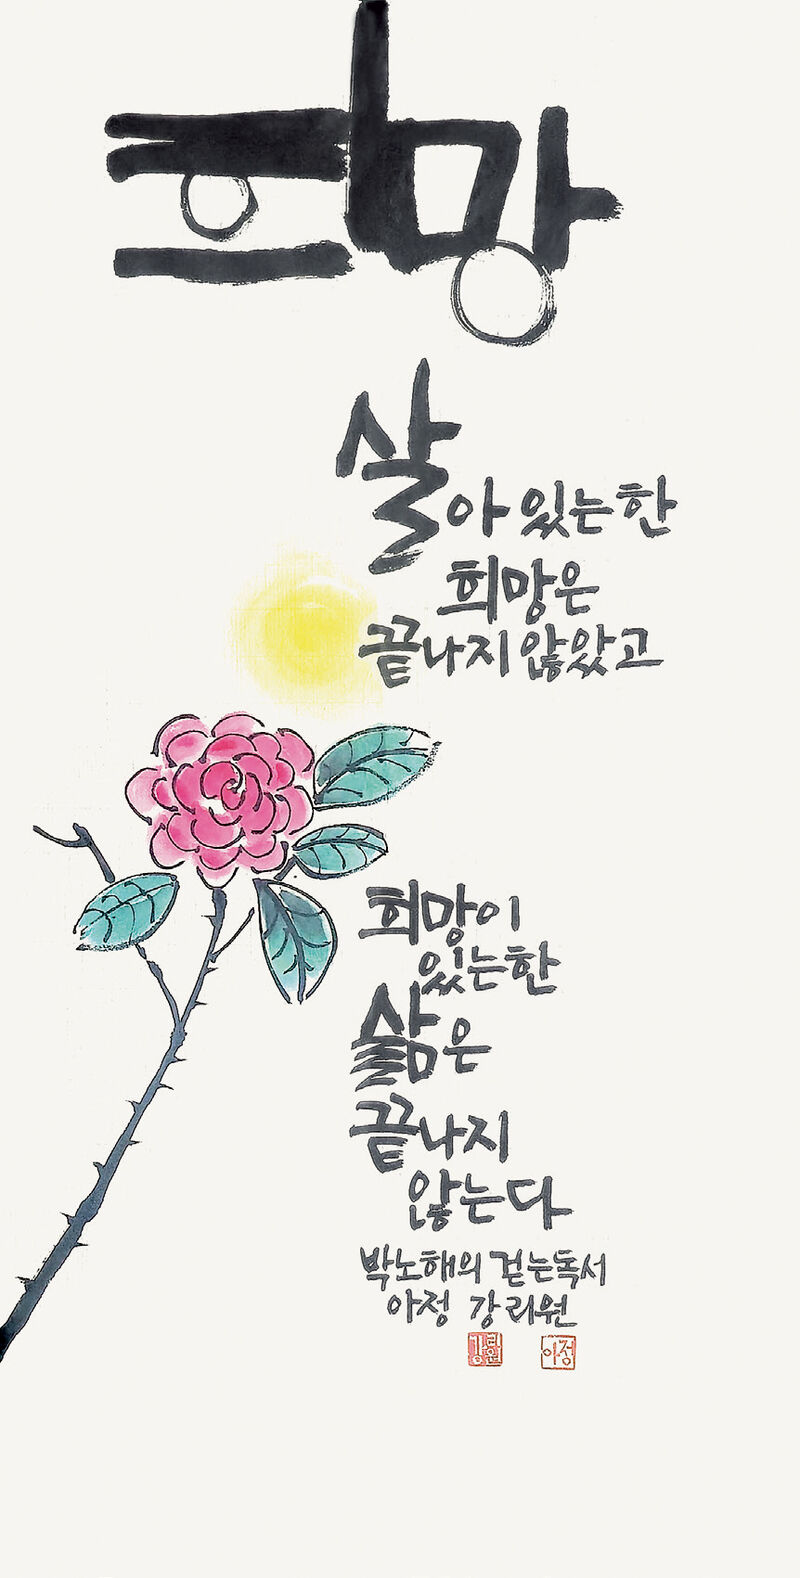 희망
살아 있는 한
희망은
끝나지 않았고
희망이
있는 한
삶은
끝나지
않는다
박노해의 걷는독서
아정 강리원
아정